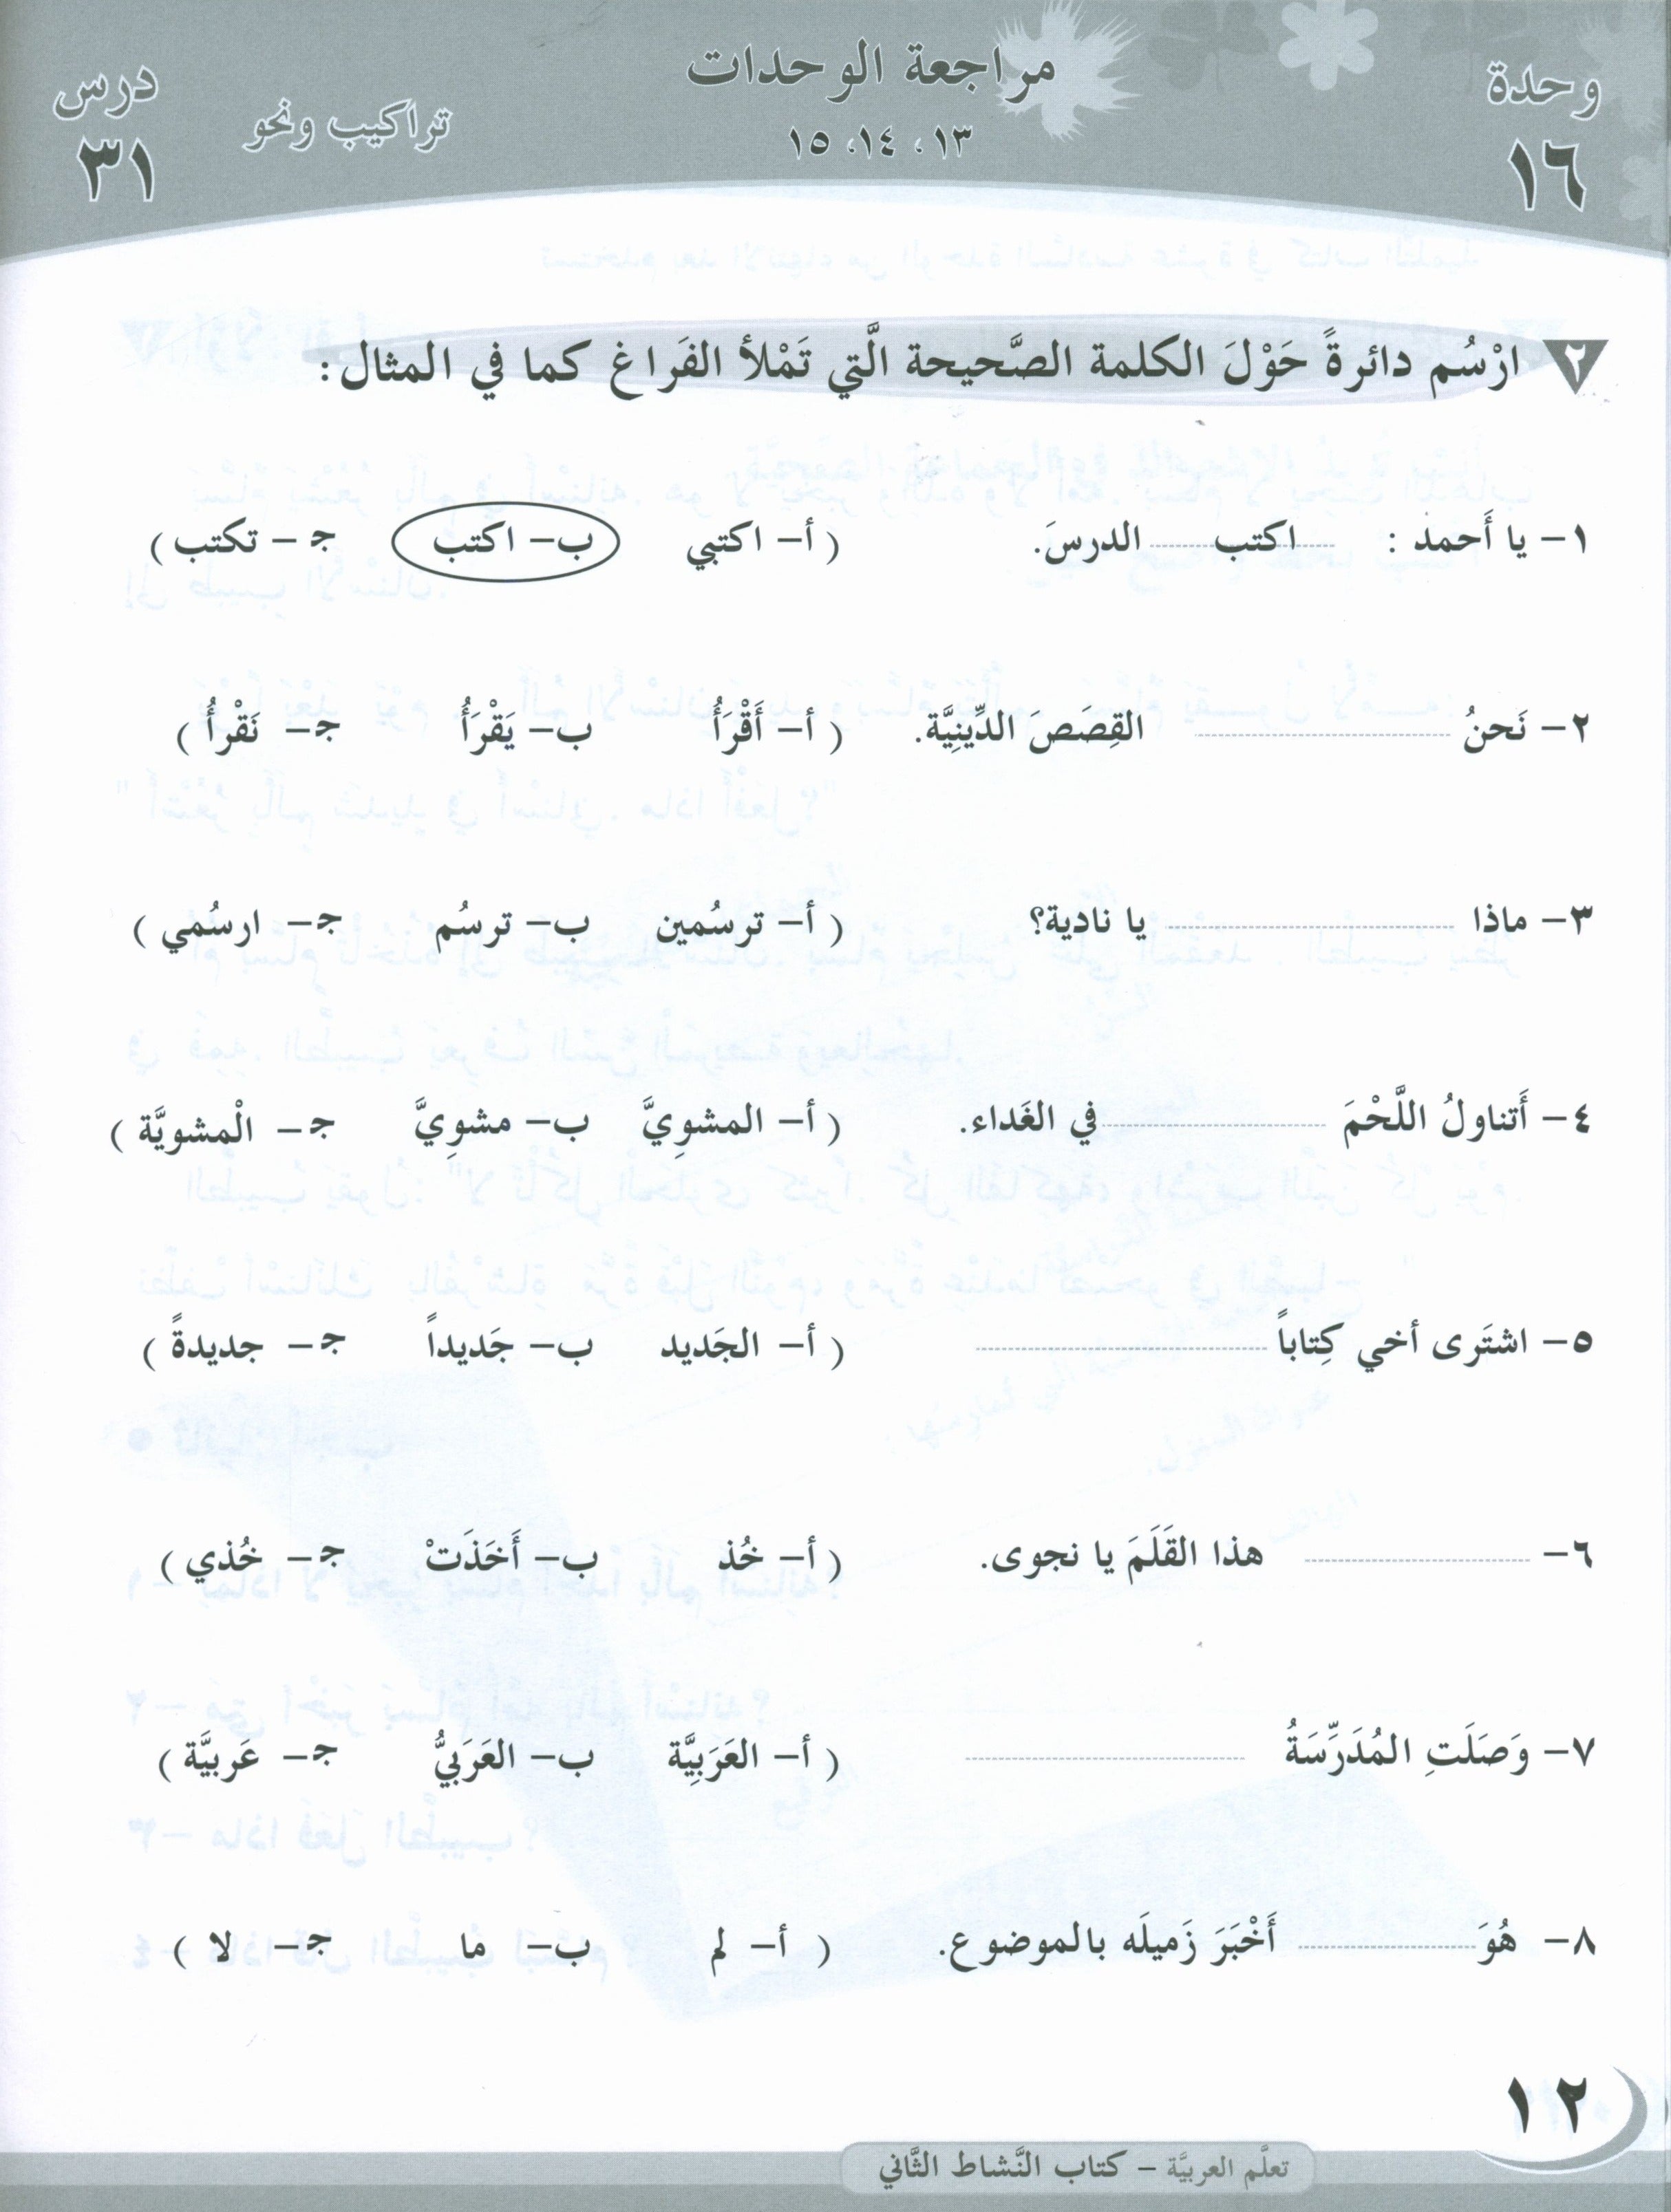 وحدة
١٦
مراجعة الوحدات
١٣ ، ١٤، ١٥
تراكيب ونحو
درس
٣١
٢ ارْسُم دائرةً حَوْلَ الكلمة الصَّحيحة الَّتي تَمْلأ الفَراغ كما في المثال:
١- يا أَحمد : اكتب الدرسَ. ( أ- اكتبي ب- اكتب جـ- تكتب )
٢- نَحنُ القِصَصَ الدِّينِيَّة. ( أ- أَقْرَأُ ب- يَقْرَأُ جـ- نَقْرأُ )
٣- ماذا يا نادية؟ ( أ- ترسُمين ب- ترسُم جـ- ارسُمي )
٤- أَتناولُ اللَّحْمَ في الغَداء. ( أ- المشوِيَّ ب- مشوِيَّ جـ- الْمشويَّة )
٥- اشتَرى أخي كِتاباً ( أ- الجَديد ب- جَديداً جـ- جديدةً )
٦- هذا القَلَمَ يا نجوى. ( أ- خُذ ب- أَخَذَتْ جـ- خُذي )
٧- وَصَلَتِ المُدَرِّسَةُ ( أ- العَرَبِيَّة ب- العَرَبيُّ جـ- عَربيَّة )
٨- هُوَ أَخْبَرَ زَميلَه بالموضوع. ( أ- لم ب- ما جـ- لا )
١٢
تعلَّم العربيَّة – كتاب النَّشاط الثَّاني